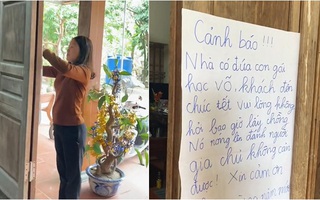 Cảnh báo !!!
Nhà có đứa con gái
học võ. khách đến
chúc tết vui lòng không
hỏi bao giờ lấy chồng
Nó nóng lên đánh người
gia chủ không can
được! Xin cảm ơn
năm mới